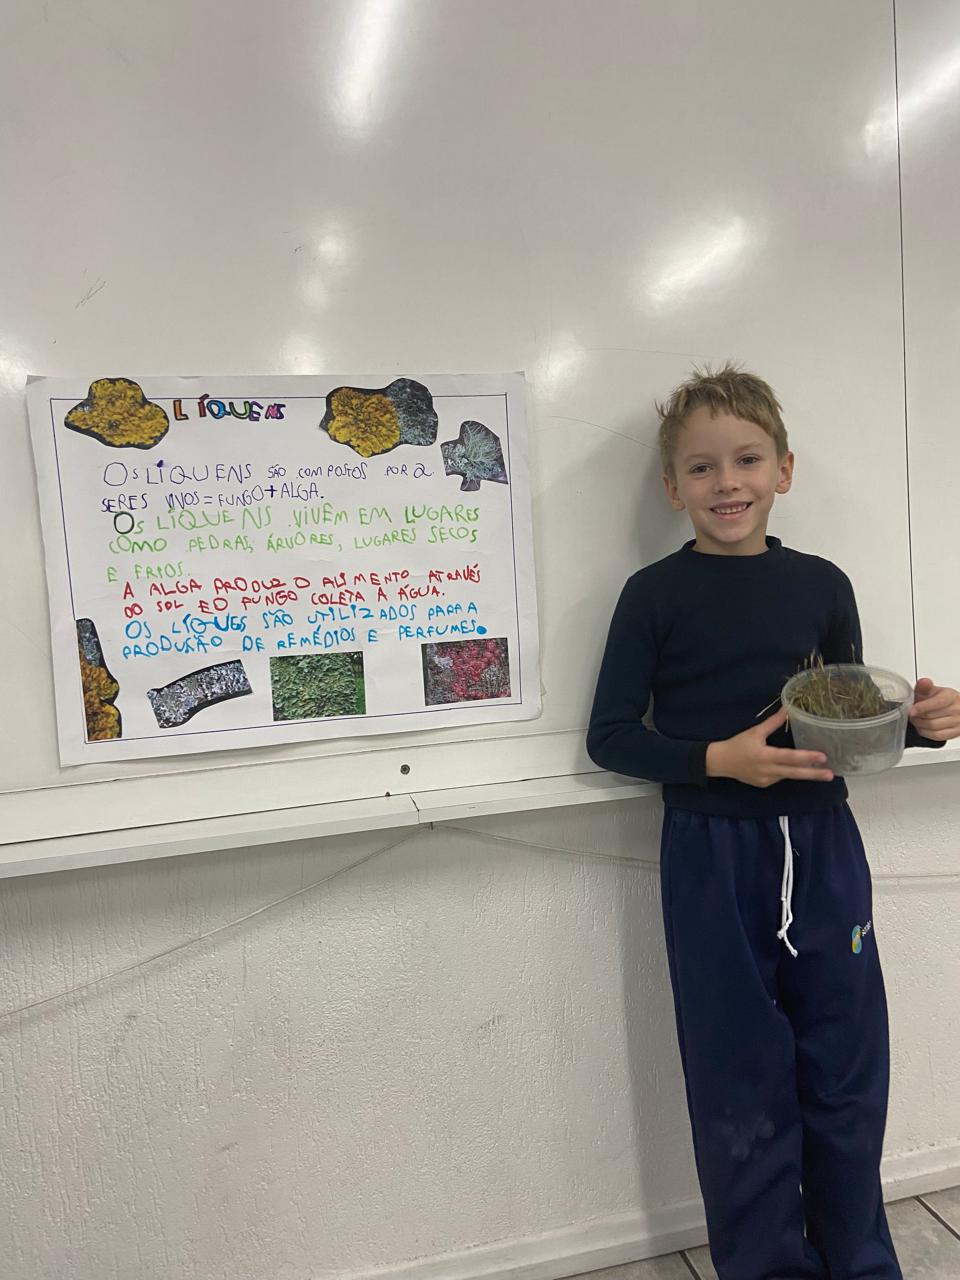 LÍQUENS
OS LÍQUENS SÃO COMPOSTOS POR 2
SERES VIVOS = FUNGO + ALGA.
OS LÍQUENS VIVEM EM LUGARES
COMO PEDRAS, ÁRVORES, LUGARES SECOS
E FRIOS.
A ALGA PRODUZ O ALIMENTO ATRAVÉS
DO SOL E O FUNGO COLETA A ÁGUA.
OS LÍQUES SÃO UTILIZADOS PARA A
PRODUSÃO DE REMÉDIOS E PERFUMES.